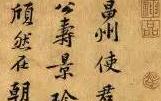 昌州使君
公壽景
頎然在朝